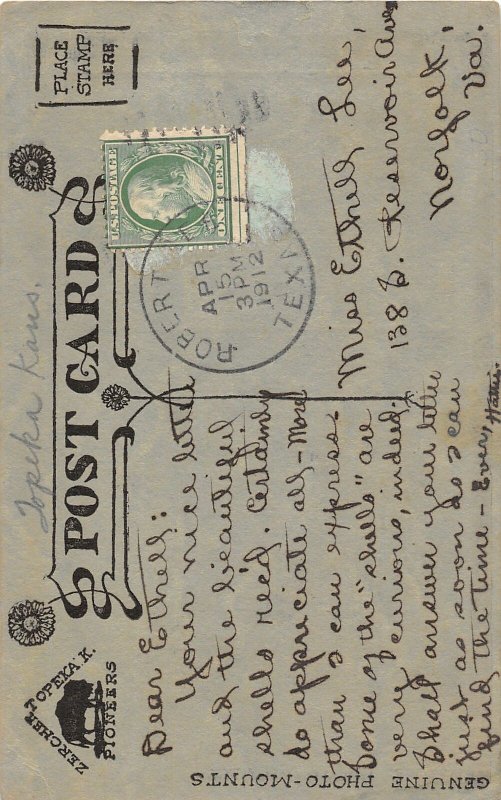 Topeka Kans.
POST CARD
PLACE
STAMP
HERE
ZERCHER-TOPEKA.K.
PIONEERS
GENUINE PHOTO-MOUNTS
U.S. POSTAGE
ONE CENT
ROBERT
APR
15
3 PM
1912
TEX
Dear Ethell:
Your nice letter
and the beautiful
shells rec'd. Certainly
do appriciate all - More
than I can express.
Some of the "shells" are
very curious, indeed.
Shall answer your letter
just as soon as I can
find the time - Ever, Hattie.
Miss Ethell Lee,
138 E. Reservoir Ave
Norfolk,
Va.